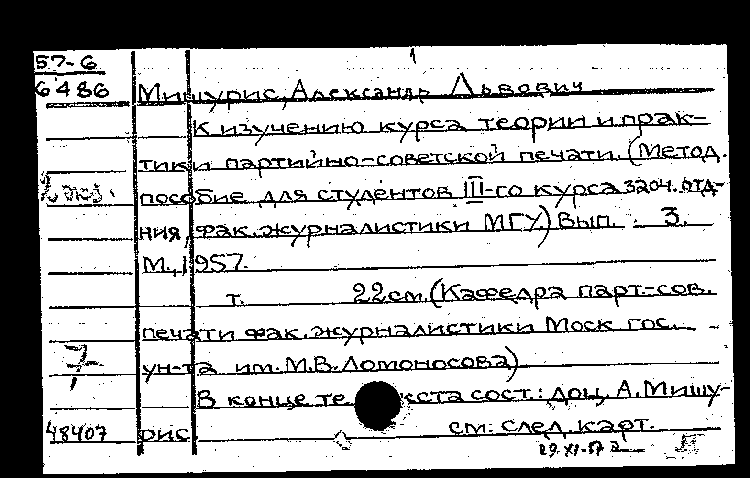 57-6
6486
1
Мишурис, Александр Львович
К изучению курса теории и прак-
тики партийно-советской печати. (Метод.
2 экз.
пособие для студентов III-го курса заоч. отд-
ния, фак. журналистики МГУ.) Вып. 3.
М., 1957.
т. 22см. (Кафедра парт.-сов.
печати фак. журналистики Моск гос.
7
ун-та им. М.В. Ломоносова)
В конце текста сост.: доц. А. Мишу-
48407
рис
см. след. карт.
29.XI-57